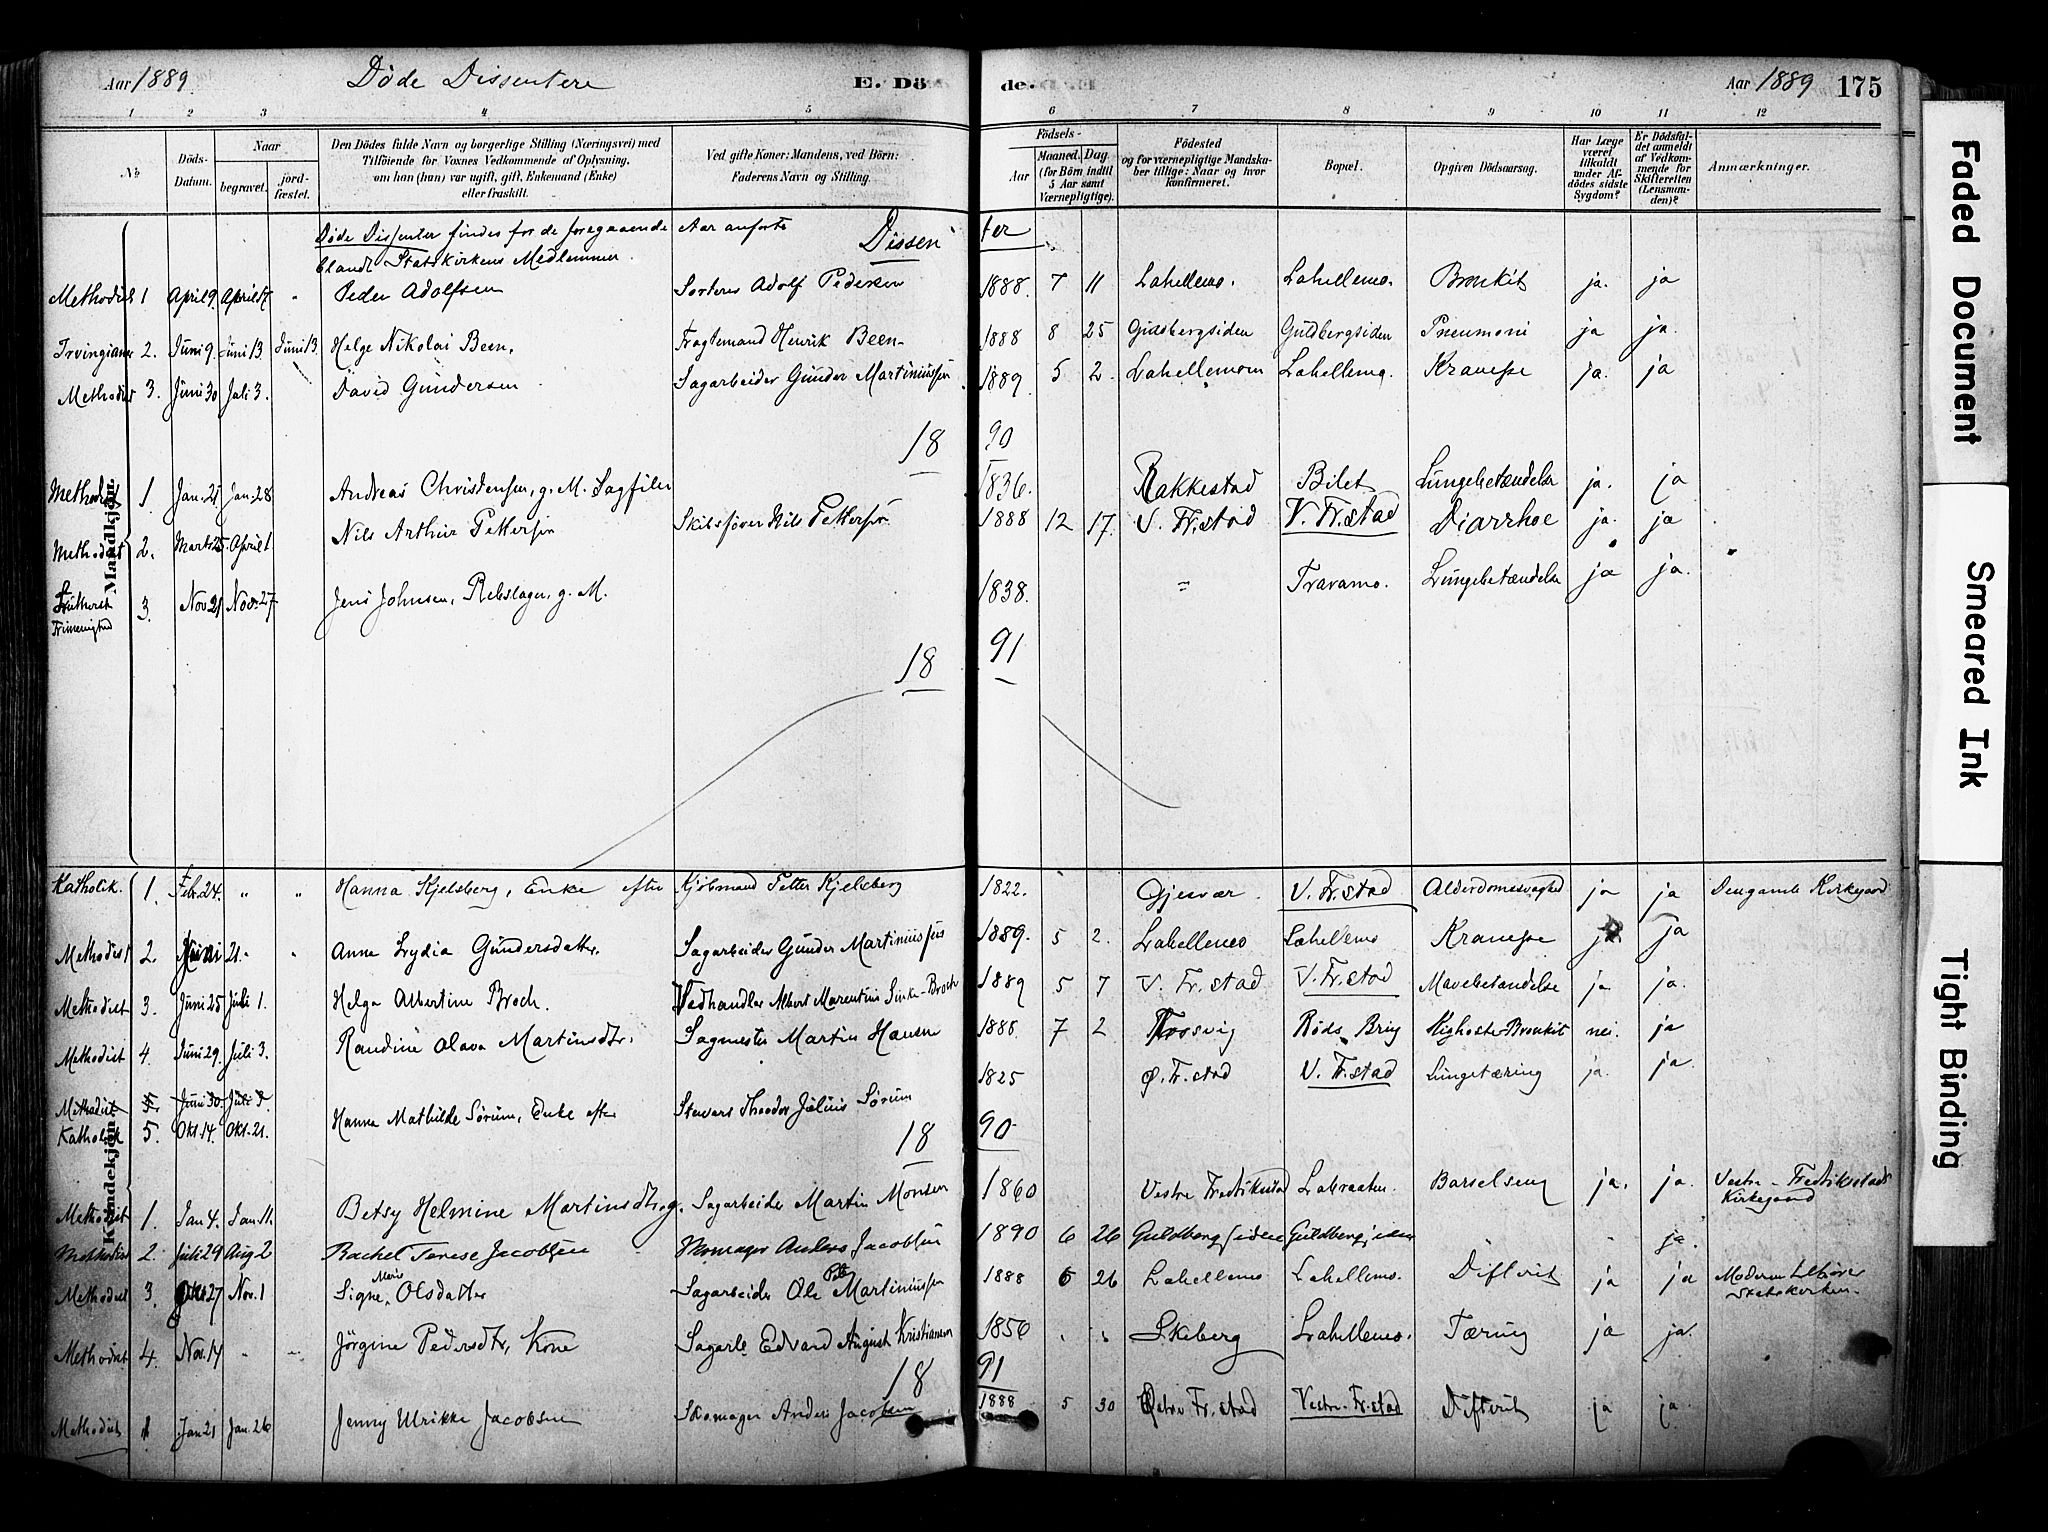 Aar 1889 Döde Dissentere E. Dö de. Aar 1889 175
1 2 3 4 5 6 7 8 9 10 11 12
№ Döds-Datum. Naar begravet. jordfæstet. Den Dödes fulde Navn og borgerlige Stilling (Næringsvei) med Tilföiende for Voxnes Vedkommende af Oplysning, om han (hun) var ugift, gift, Enkemand (Enke) eller fraskilt. Ved gifte Koner: Mandens, ved Börn: Faderens Navn og Stilling. Födsels- Aar Maaned. Dag (for Börn indtil 5 Aar samt Værnepligtige). Födested og for værnepligtige Mandskaber tillige: Naar og hvor konfirmeret. Bopæl. Opgiven Dödsaarsag. Har Læge været tilkaldt under Afdödes sidste Sygdom? Er Dödsfaldet anmeldt af Vedkommende for Skifteretten (Lensmanden)? Anmærkninger.
Døde Dissenter findes for de foregaaende Aar anførte Dissen ter
blandt Statskirkens Medlemmer.
Methodist 1 April 9. April 17 " Peder Adolfsen Sorterer Adolf Pedersen 1888. 7 11 Lahellemo. Lahellemo. Bronkit ja. ja
Irvingianer 2. Juni 9. Juni 13. Juni 13. Helge Nikolai Been. Fragtemand Henrik Been 1888 8 25 Guldbergsiden Guldbergsiden Pneumoni ja ja.
Methodist 3. Juni 30 Juli 3. David Gundersen Sagarbeider Gunder Martiniussen 1889. 5 2. Lahellemoen Lahellemo. Krampe ja. ja
18 90
Mandkjøn.
Methodist 1. Jan. 21 Jan. 28 Andreas Christensen, g. M. Sagfiler 1836. Rakkestad Bilet Lungebetændelse ja. ja
Methodist 2. Marts 25. April 1 Nils Arthur Pettersen Skibsfører Nils Pettersen 1888 12 17. V. Fr.stad V. Fr.stad Diarrhoe ja. ja
Frimenighed 3. Nov 21 Nov. 27 Jens Johnsen, Rebslager, g. M. 1838. " Traramo. Lungebetændelse ja ja.
18 91
Katholik. 1. Febr. 24. " " Hanna Kjelsberg, Enke efter Kjøbmand Petter Kjelsberg 1822. Gjesvær V. Fr.stad Alderdomssvaghed ja ja Den gamle Kirkegaard
Methodist 2. Juni 21. " " Anne Lydia Gundersdatter. Sagarbeider Gunder Martiniussen 1889. 5 2. Lahellemo Lahellemo Krampe ja ja
Methodist 3. Juni 25 Juli 1. Helga Albertine Broch. Vedhandler Albert Marentius Broch 1889 5 7 V. Fr.stad V. Fr.stad Mavebetændelse ja ja.
Methodist 4. Juni 29. Juli 3. Randine Olava Martinsdtr. Sagmester Martin Hansen 1888. 7 2 Trosvig Røds Brug Kighoste Bronkit nei. ja
Methodist 5. Juni 30. Juli 3.
Katholik 5. Okt. 14. Okt. 21. Hanna Mathilde Sørum, Enke efter Theodor Julius Sørum 1825 Ø. Fr.stad V. Fr.stad Lungetæring ja. ja.
18 90
Kvindekjøn.
Methodist 1. Jan 4. Jan. 11. Betsy Helmine Martinsdtr, g. Sagarbeider Martin Monsen 1860 Vestre Fredrikstad Labraaten. Barselseng ja. ja. Vestre Fredrikstads Kirkegaard
Methodist 2. Juli 29 Aug 2 Rachel Terese Jacobsen Skomager Anders Jacobsen 1890 6 26 Guldbergsiden Guldbergsiden - ja.
Methodist 3. Okt 27 Nov. 1 Signe Marie Olsdatter Sagarbeider Ole Martiniussen 1888 6 26 Lahellemo Lahellemo. Difterit ja ja Moderen tilhører Statskirken.
Methodist 4. Nov. 14 " " Jörgine Pedersdtr, Kone Sagarb. Edvard August Kristiansen 1856 " " Skeberg Lahellemo. Tæring ja ja.
18 91
Methodist 1 Jan 21 Jan. 26 Jenny Ulrikke Jacobsen Skomager Anders Jacobsen 1888 5 30 Østre Fr.stad Vestre Fr.stad Difterit ja ja.
Faded Document
Smeared Ink
Tight Binding